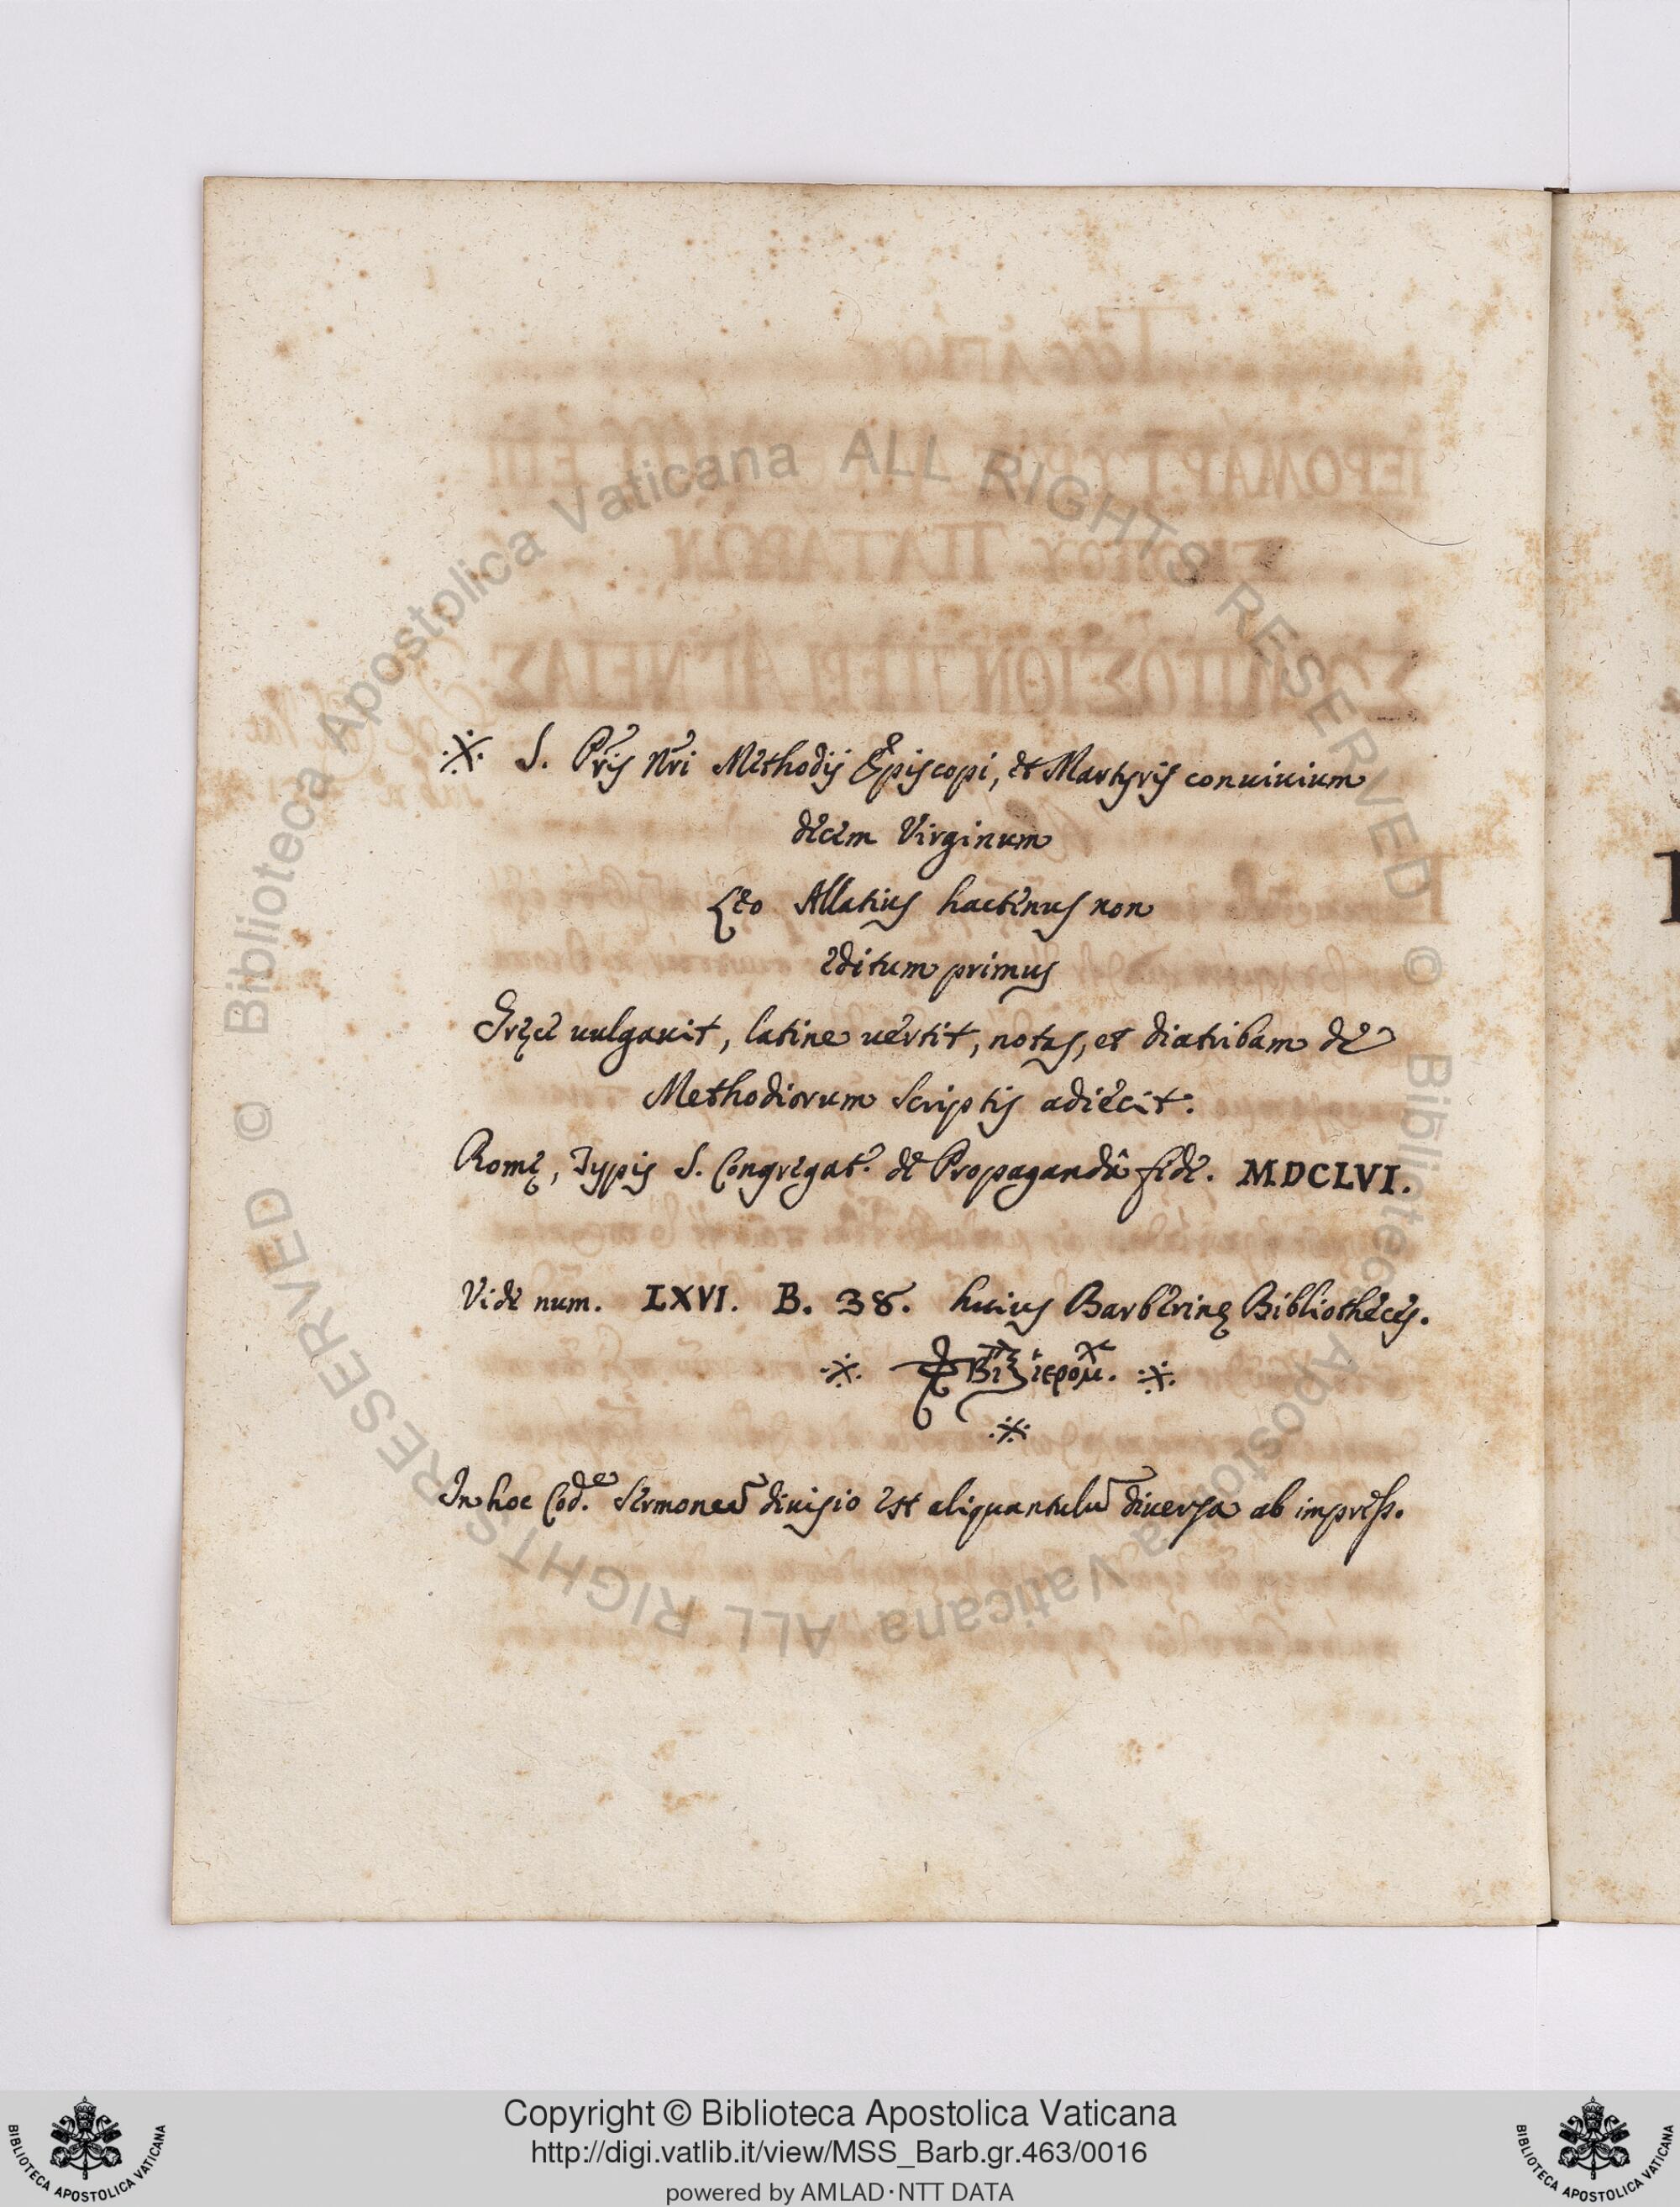 ※ S. Pr̃is Nr̃i Methodij Episcopi, et Martyris conuiuium
decem Virginum
Leo Allatius hactenus non
editum primus
Gręce uulgauit, latine uertit, notas, et diatribam de
Methodiorum scriptis adiecit.
Romę, Typis S. Congregat. de Propagandâ fide. MDCLVI.
Vide num. LXVI. B. 38. huius Barberinę Bibliothecę.
※ ※
※
In hoc Cod.e Sermonũ diuisio est aliquantulũ diuersa ab impress.
© Biblioteca Apostolica Vaticana ALL RIGHTS RESERVED © Biblioteca Apostolica Vaticana ALL RIGHTS RESERVED
Copyright © Biblioteca Apostolica Vaticana
http://digi.vatlib.it/view/MSS_Barb.gr.463/0016
powered by AMLAD·NTT DATA
BIBLIOTECA APOSTOLICA VATICANA
BIBLIOTECA APOSTOLICA VATICANA